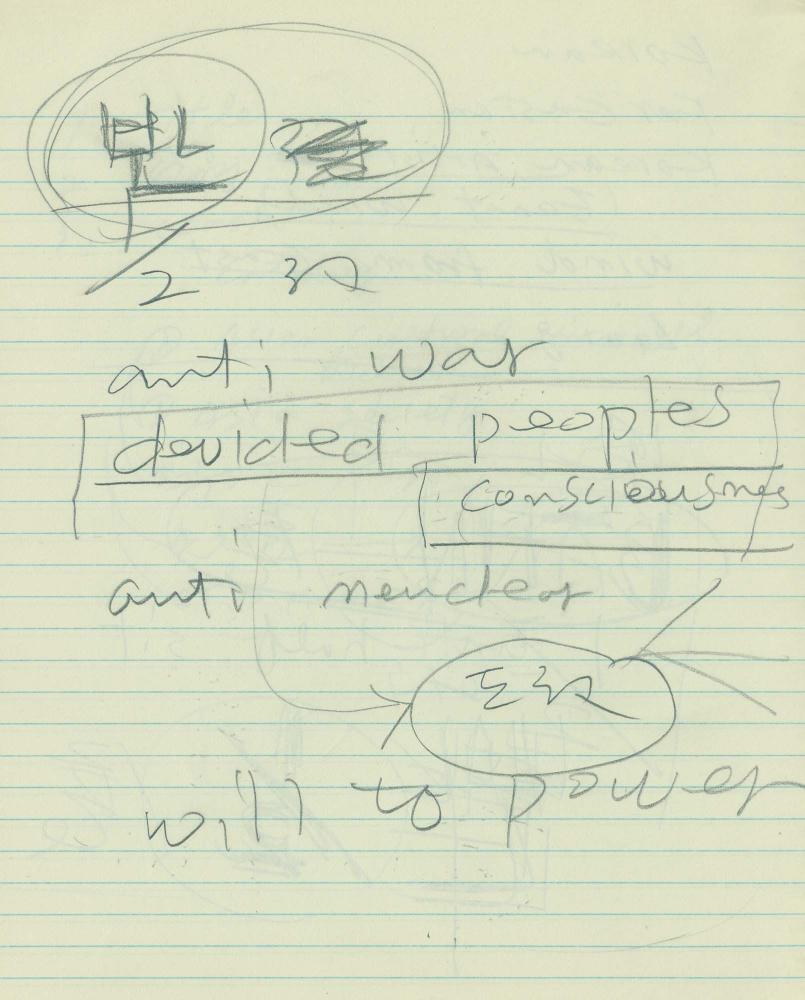 반
anti war
devided peoples
consciousness
anti neuclear
will to power